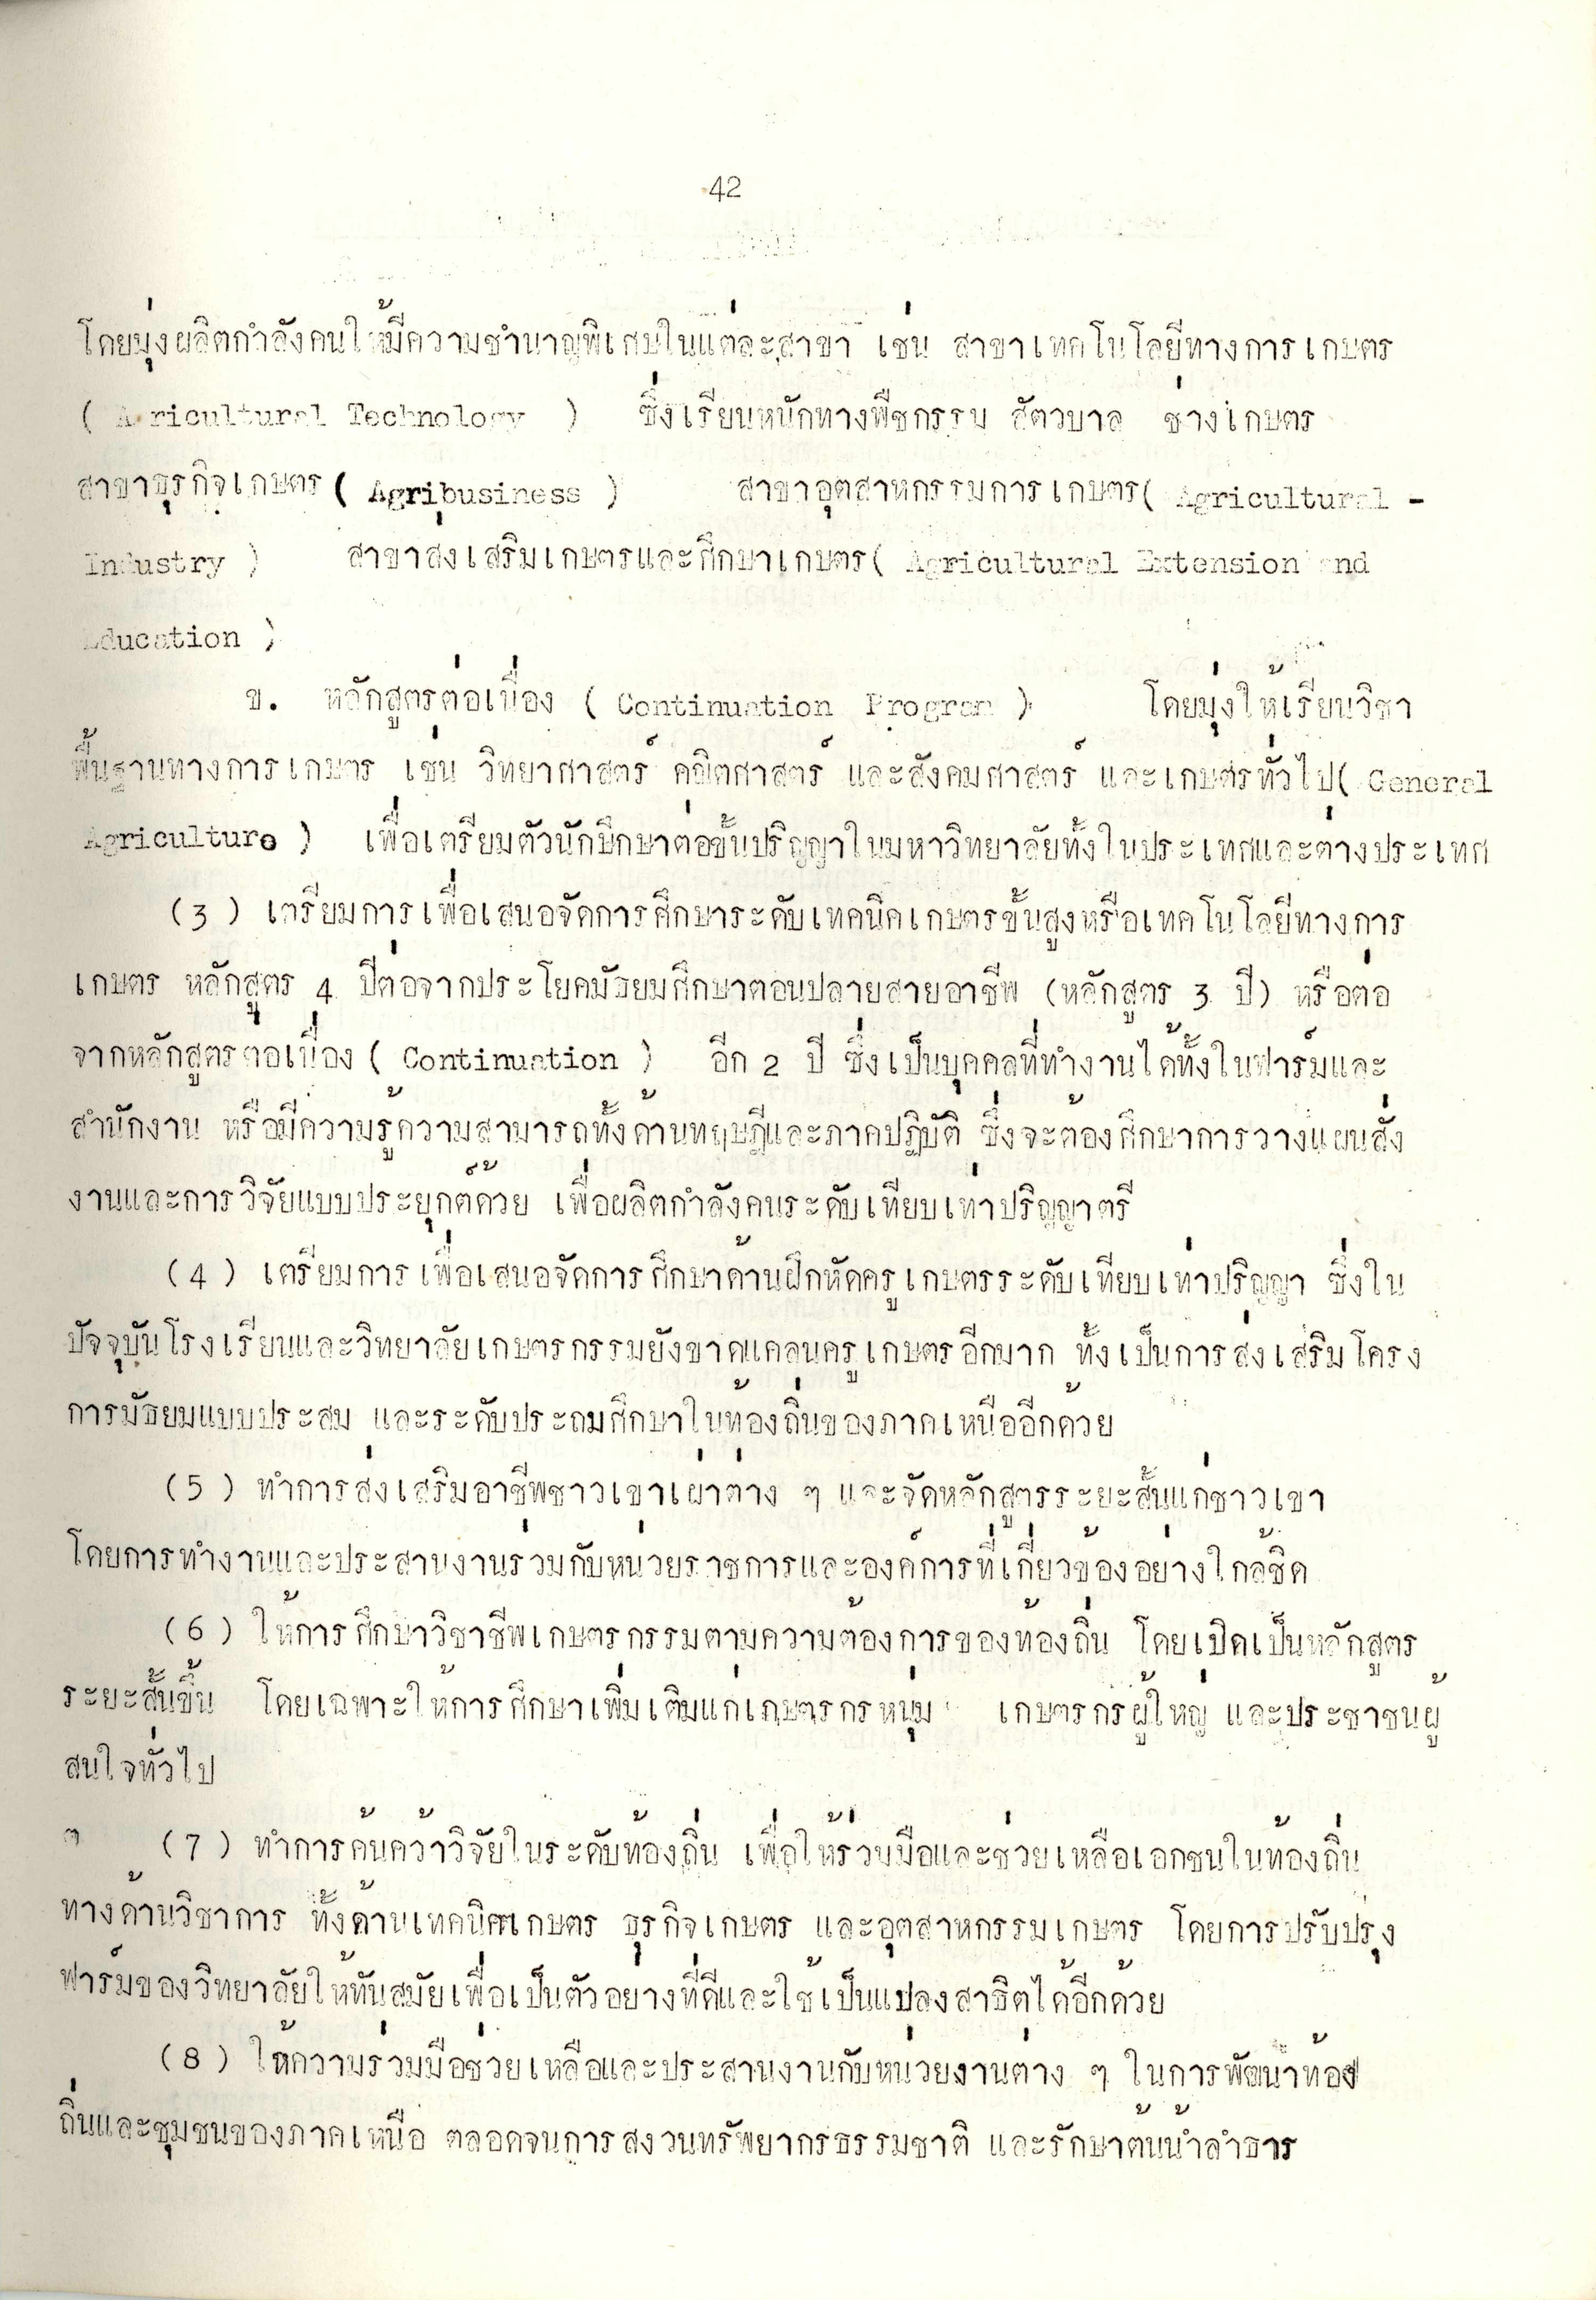 42
โดยมุ่งผลิตกำลังคนให้มีความชำนาญพิเศษในแต่ละสาขา เช่น สาขาเทคโนโลยีทางการเกษตร
( Agricultural Technology ) ซึ่งเรียนหนักทางพืชกรรม สัตวบาล ช่างเกษตร
สาขาธุรกิจเกษตร ( Agribusiness ) สาขาอุตสาหกรรมการเกษตร( Agricultural -
Industry ) สาขาส่งเสริมเกษตรและศึกษาเกษตร( Agricultural Extension and
Education )
ข. หลักสูตรต่อเนื่อง ( Continuation Program ) โดยมุ่งให้เรียนวิชา
พื้นฐานทางการเกษตร เช่น วิทยาศาสตร์ คณิตศาสตร์ และสังคมศาสตร์ และเกษตรทั่วไป( General
Agriculture ) เพื่อเตรียมตัวนักศึกษาต่อขั้นปริญญาในมหาวิทยาลัยทั้งในประเทศและต่างประเทศ
(3) เตรียมการเพื่อเสนอจัดการศึกษาระดับเทคนิคเกษตรขั้นสูงหรือเทคโนโลยีทางการ
เกษตร หลักสูตร 4 ปีต่อจากประโยคมัธยมศึกษาตอนปลายสายอาชีพ (หลักสูตร 3 ปี) หรือต่อ
จากหลักสูตรต่อเนื่อง ( Continuation ) อีก 2 ปี ซึ่งเป็นบุคคลที่ทำงานได้ทั้งในฟาร์มและ
สำนักงาน หรือมีความรู้ความสามารถทั้งด้านทฤษฎีและภาคปฏิบัติ ซึ่งจะต้องศึกษาการวางแผนสั่ง
งานและการวิจัยแบบประยุกต์ด้วย เพื่อผลิตกำลังคนระดับเทียบเท่าปริญญาตรี
(4) เตรียมการเพื่อเสนอจัดการศึกษาด้านฝึกหัดครูเกษตรระดับเทียบเท่าปริญญา ซึ่งใน
ปัจจุบันโรงเรียนและวิทยาลัยเกษตรกรรมยังขาดแคลนครูเกษตรอีกมาก ทั้งเป็นการส่งเสริมโครง
การมัธยมแบบประสม และระดับประถมศึกษาในท้องถิ่นของภาคเหนืออีกด้วย
(5) ทำการส่งเสริมอาชีพชาวเขาเผ่าต่าง ๆ และจัดหลักสูตรระยะสั้นแก่ชาวเขา
โดยการทำงานและประสานงานร่วมกับหน่วยราชการและองค์การที่เกี่ยวข้องอย่างใกล้ชิด
(6) ให้การศึกษาวิชาชีพเกษตรกรรมตามความต้องการของท้องถิ่น โดยเปิดเป็นหลักสูตร
ระยะสั้นขึ้น โดยเฉพาะให้การศึกษาเพิ่มเติมแก่เกษตรกรหนุ่ม เกษตรกรผู้ใหญ่ และประชาชนผู้
สนใจทั่วไป
(7) ทำการค้นคว้าวิจัยในระดับท้องถิ่น เพื่อให้ร่วมมือและช่วยเหลือเอกชนในท้องถิ่น
ทางด้านวิชาการ ทั้งด้านเทคนิคเกษตร ธุรกิจเกษตร และอุตสาหกรรมเกษตร โดยการปรับปรุง
ฟาร์มของวิทยาลัยให้ทันสมัยเพื่อเป็นตัวอย่างที่ดีและใช้เป็นแปลงสาธิตได้อีกด้วย
(8) ให้ความร่วมมือช่วยเหลือและประสานงานกับหน่วยงานต่าง ๆ ในการพัฒนาท้อง
ถิ่นและชุมชนของภาคเหนือ ตลอดจนการสงวนทรัพยากรธรรมชาติ และรักษาต้นน้ำลำธาร